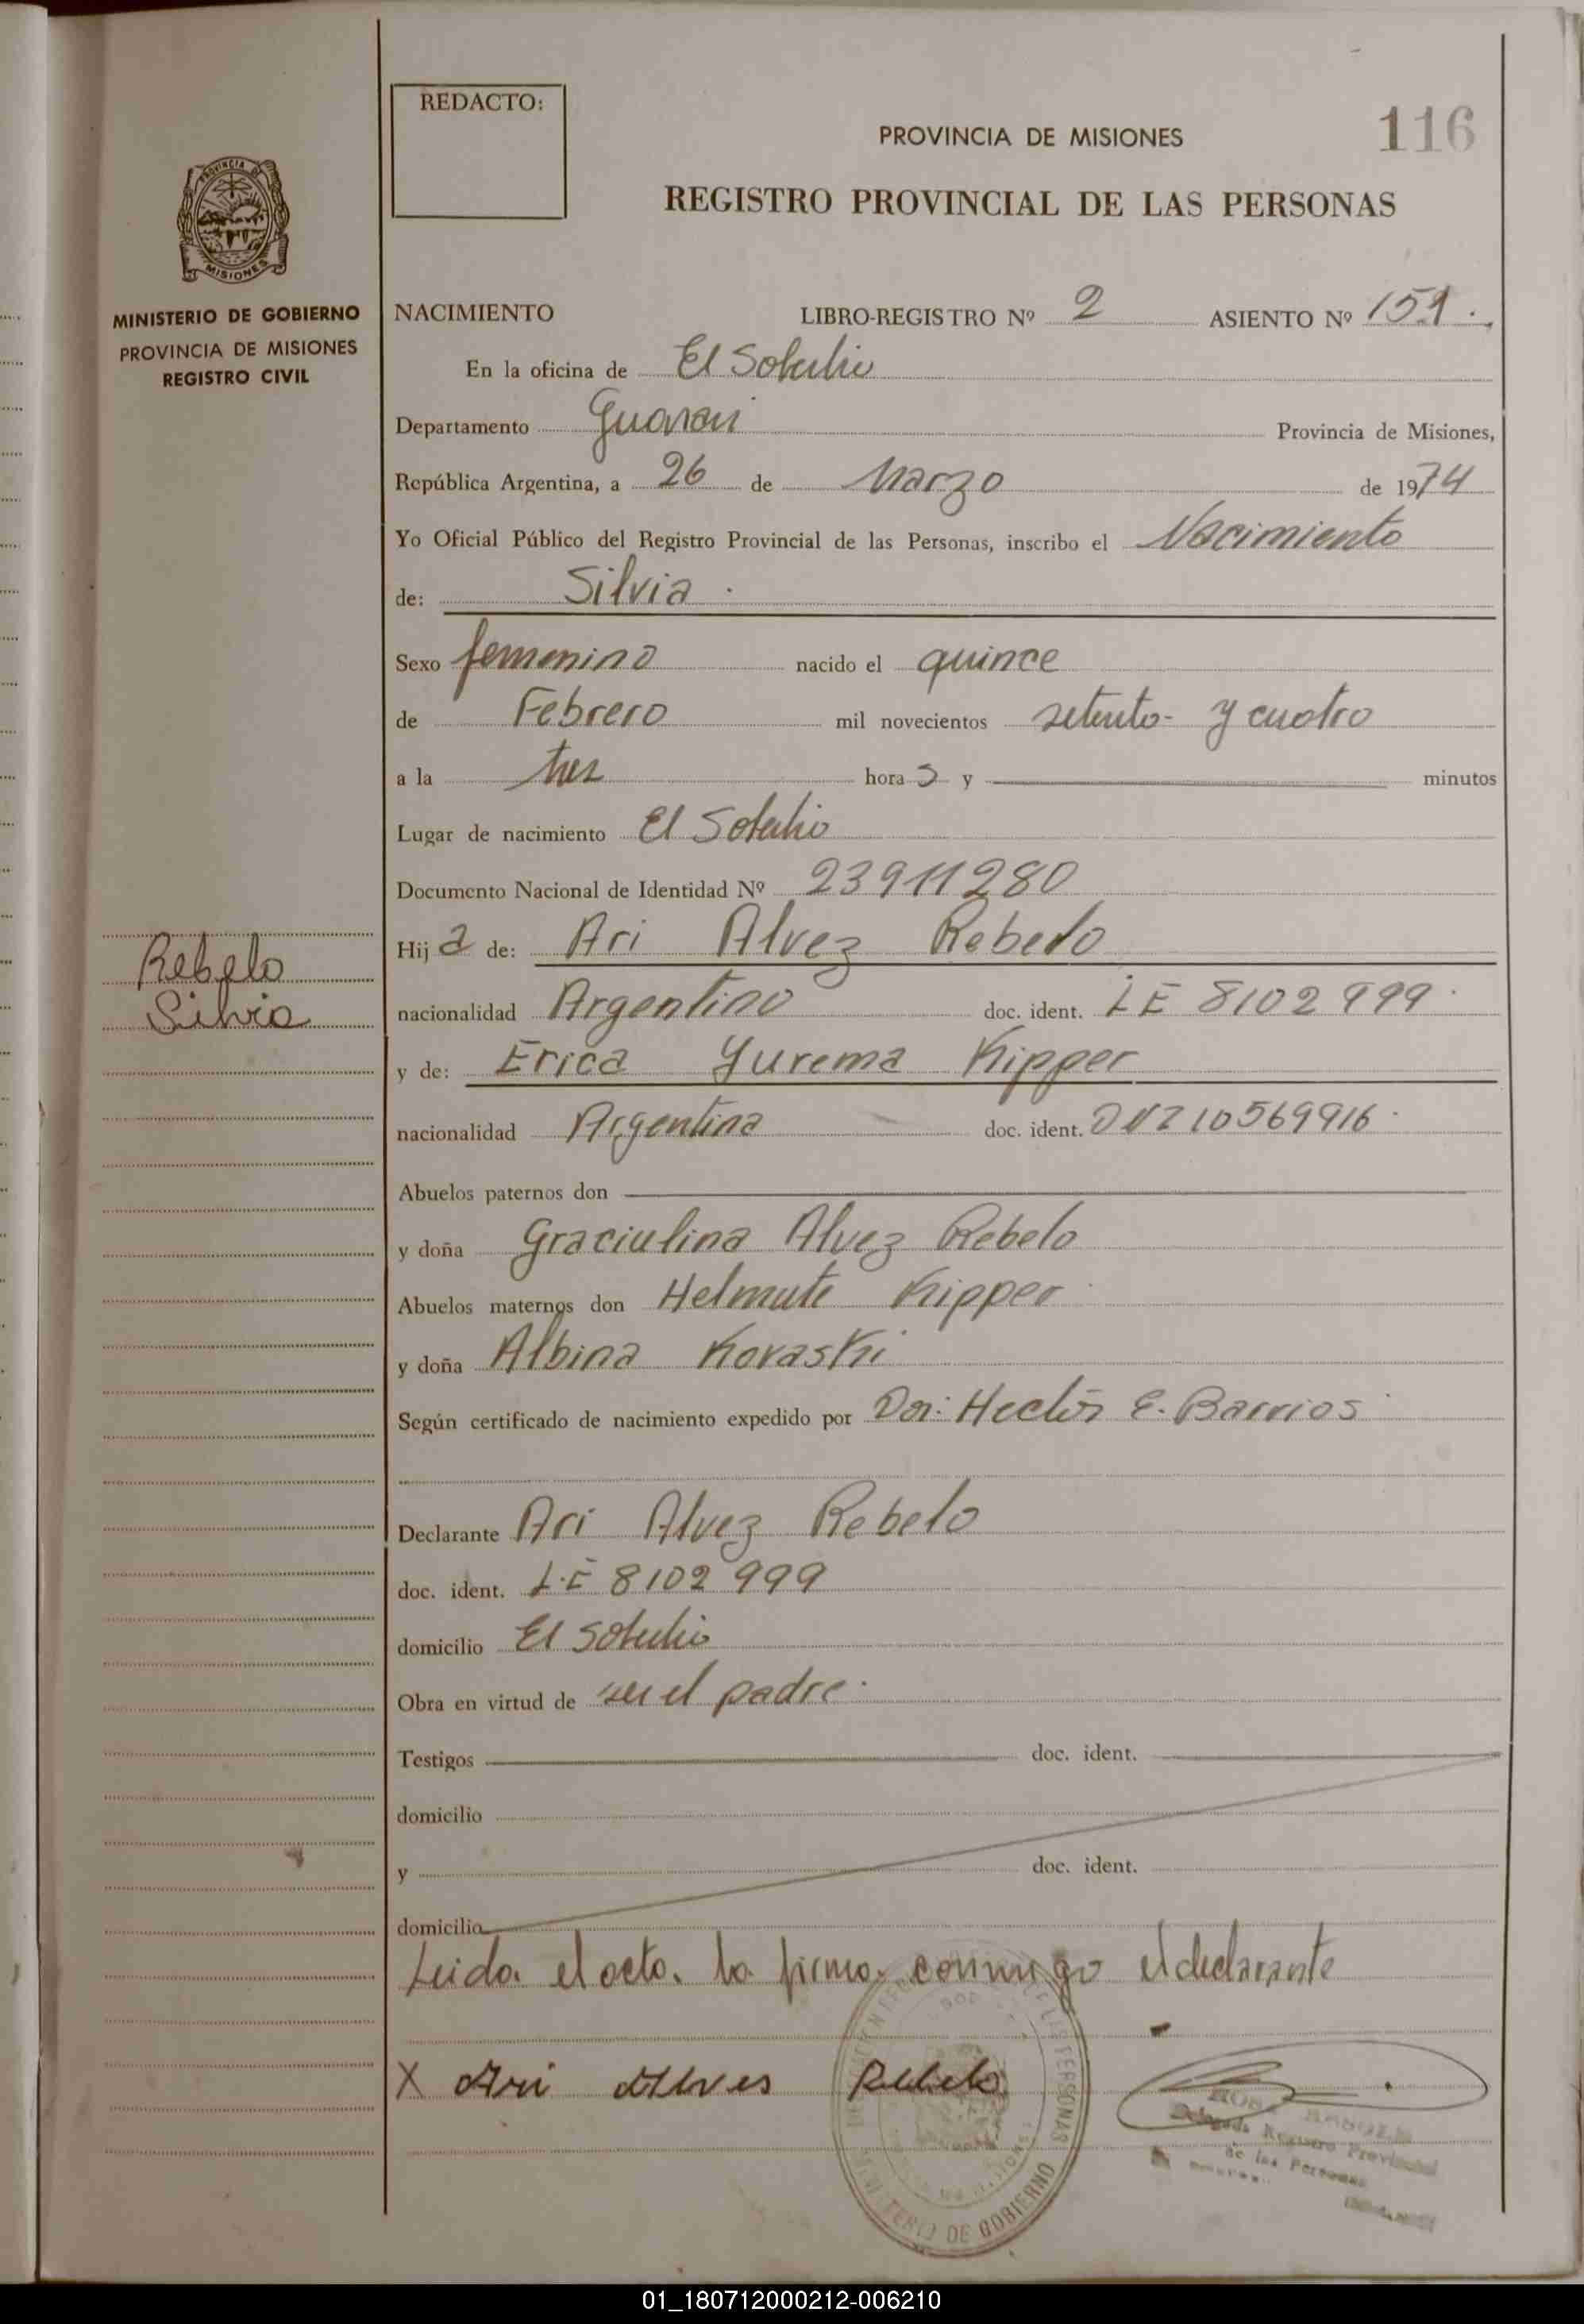 REDACTO:
116
PROVINCIA DE MISIONES
REGISTRO PROVINCIAL DE LAS PERSONAS
PROVINCIA DE
MISIONES
MINISTERIO DE GOBIERNO
PROVINCIA DE MISIONES
REGISTRO CIVIL
NACIMIENTO LIBRO-REGISTRO Nº 2 ASIENTO Nº 151.
En la oficina de El Soberbio
Departamento Guarani Provincia de Misiones,
República Argentina, a 26 de Marzo de 1974
Yo Oficial Público del Registro Provincial de las Personas, inscribo el Nacimiento
de: Silvia.
Sexo femenino nacido el quince
de Febrero mil novecientos setenta y cuatro
a la tres hora s y minutos
Lugar de nacimiento El Soberbio
Documento Nacional de Identidad Nº 23911280
Hij a de: Ari Alvez Rebelo
Rebelo
Silvia
nacionalidad Argentino doc. ident. LE 8102999.
y de: Erica Yurema Kipper
nacionalidad Argentina doc. ident. DNI 10569916.
Abuelos paternos don
y doña Graciulina Alvez Rebelo
Abuelos maternos don Helmute Kipper
y doña Albina Kovaski
Según certificado de nacimiento expedido por Dor: Hector E. Barrios
Declarante Ari Alvez Rebelo
doc. ident. L.E 8102999
domicilio El Soberbio
Obra en virtud de ser el padre.
Testigos doc. ident.
domicilio
y doc. ident.
domicilio
Leida el acta, la firma conmigo el declarante
X Ari Alves Rebelo
PERSONAS
DE GOBIERNO
Delegada Registro Provincial
de las Personas
01_180712000212-006210